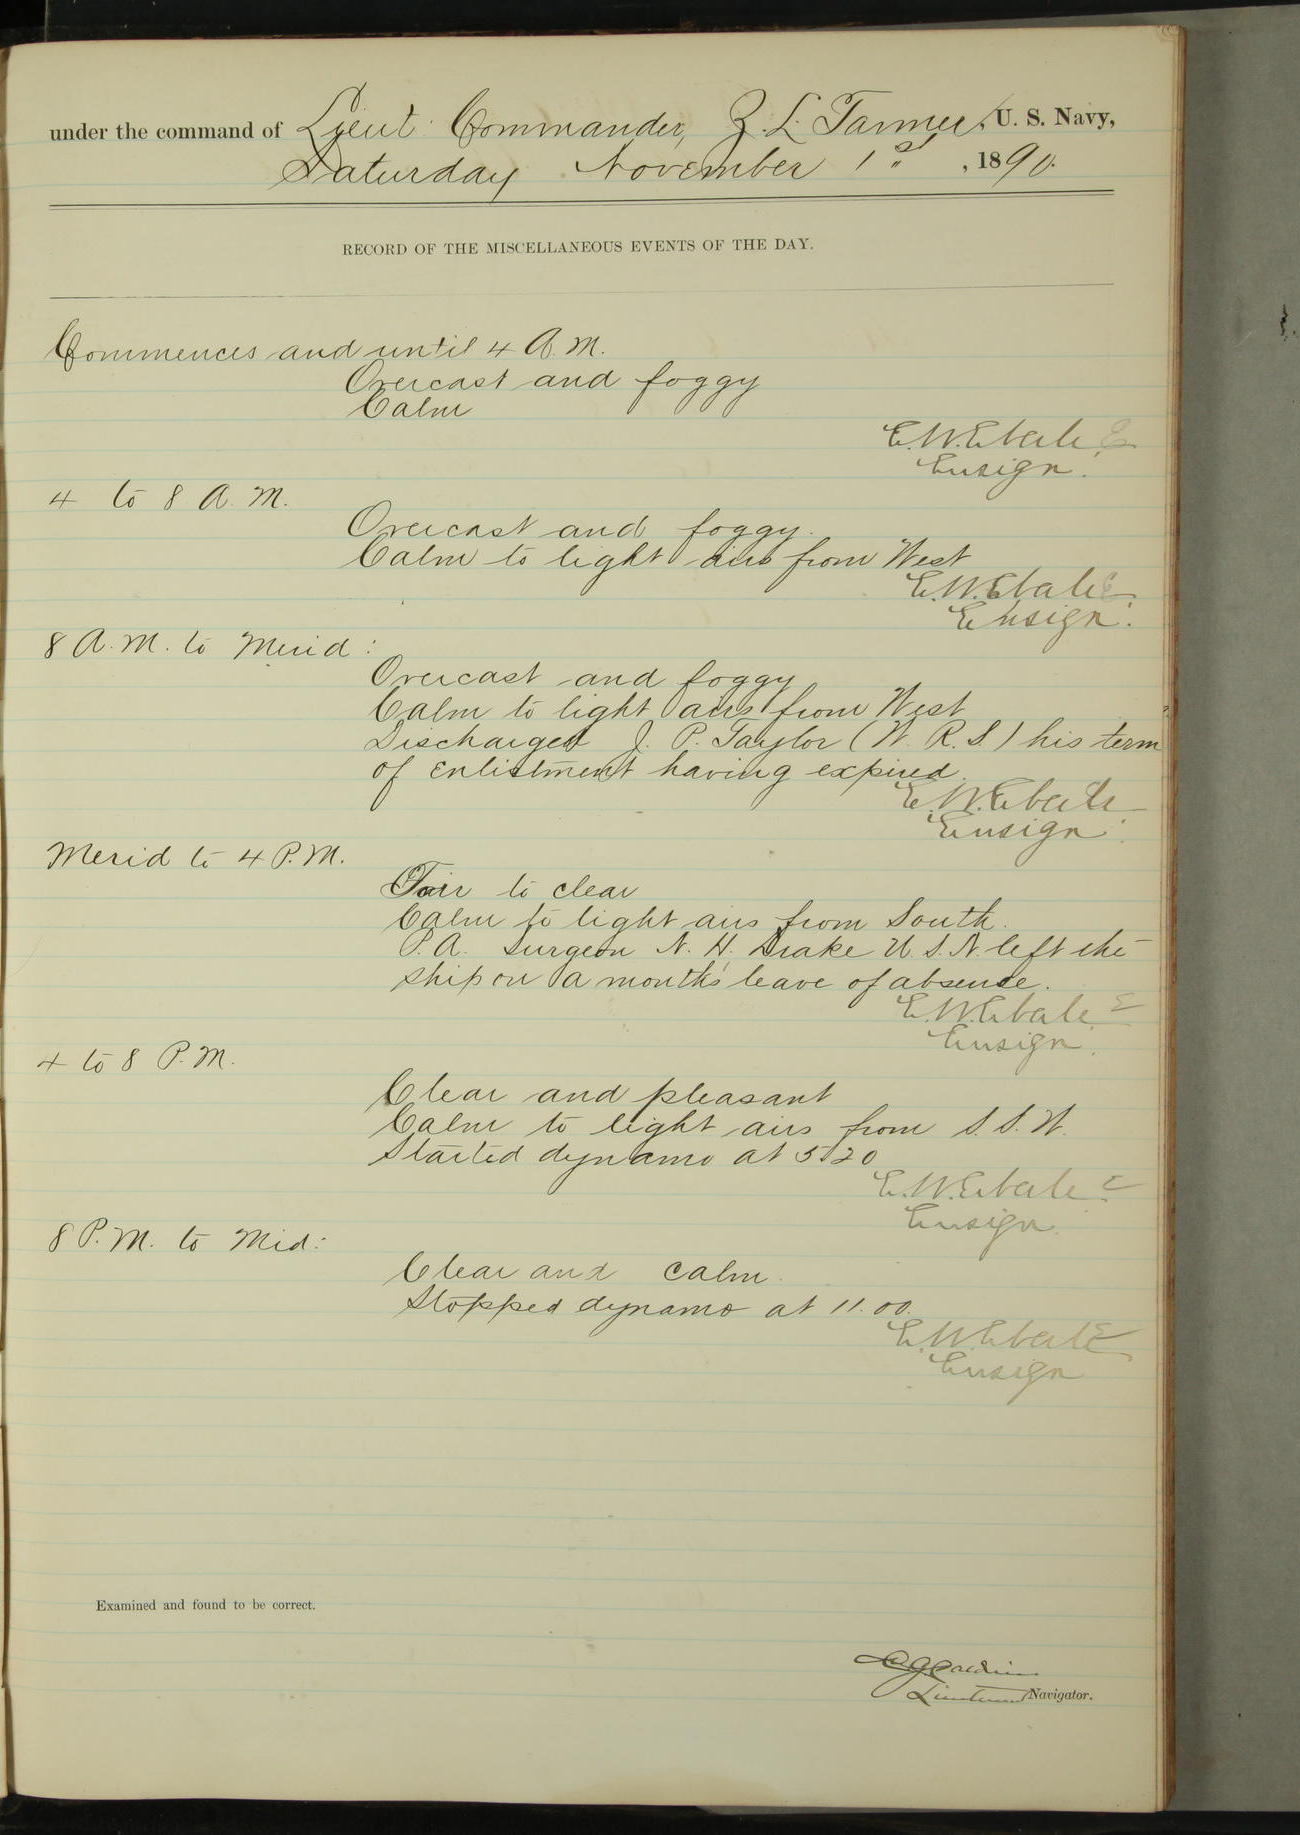 under the command of Lieut. Commander, Z. L. Tanner, U. S. Navy,
Saturday November 1st, 1890.
RECORD OF THE MISCELLANEOUS EVENTS OF THE DAY.
Commences and until 4 A.M.
Overcast and foggy
Calm
E. W. Eberle
Ensign.
4 to 8 A.M.
Overcast and foggy.
Calm to light airs from West
E. W. Eberle
Ensign.
8 A.M. to Merid:
Overcast and foggy
Calm to light airs from West
Discharged J. P. Taylor (W. R. S.) his term
of enlistment having expired.
E. W. Eberle
Ensign.
Merid to 4 P.M.
Fair to clear
Calm to light airs from South.
P.A. Surgeon N. H. Drake U.S.N. left the
ship on a month's leave of absense.
E. W. Eberle
Ensign.
4 to 8 P.M.
Clear and pleasant
Calm to light airs from S.S.W.
Started dynamo at 5.20
E. W. Eberle
Ensign.
8 P.M. to Mid:
Clear and calm.
Stopped dynamo at 11.00.
E. W. Eberle
Ensign
Examined and found to be correct.
Lieutenant Navigator.